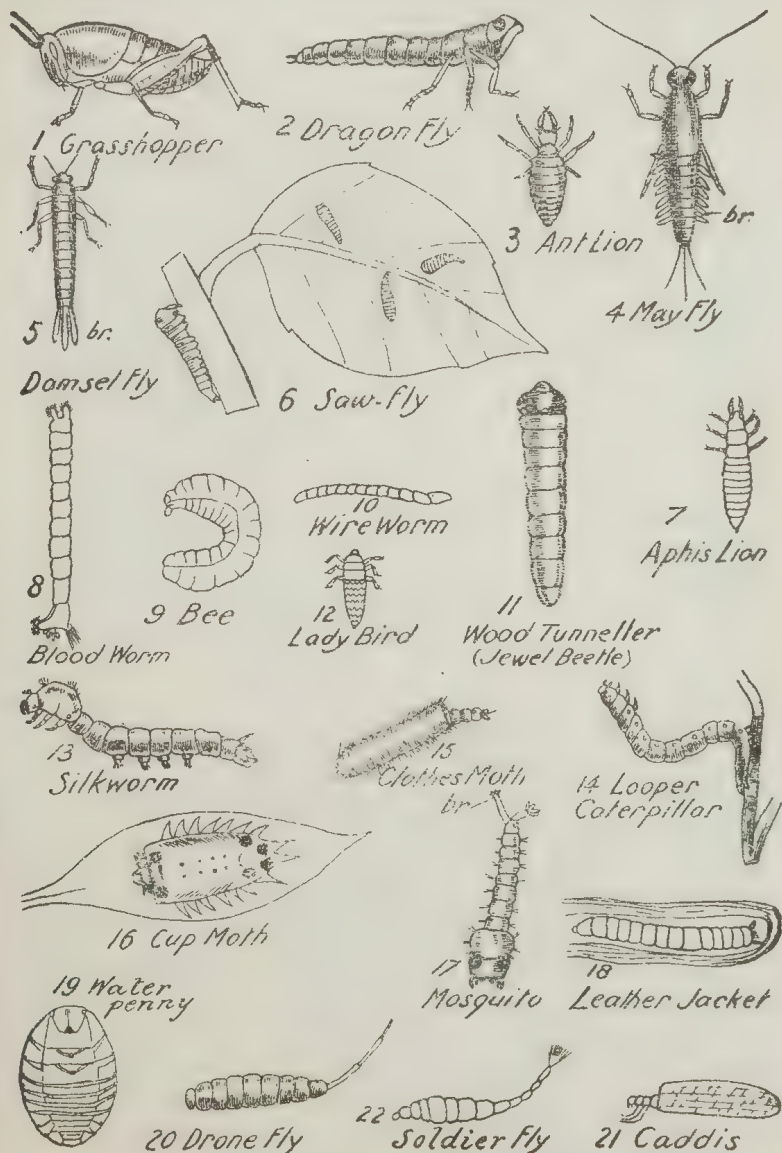 1 Grasshopper
2 Dragon Fly
3 Ant Lion
br.
4 May Fly
5 br.
Damsel Fly
6 Saw-fly
7
Aphis Lion
8
Blood Worm
9 Bee
10
Wire Worm
11
Wood Tunneller
(Jewel Beetle)
12
Lady Bird
13
Silkworm
15
Clothes Moth
14 Looper
Caterpillar
br.
16 Cup Moth
17
Mosquito
18
Leather Jacket
19 Water
penny
20 Drone Fly
22
Soldier Fly
21 Caddis